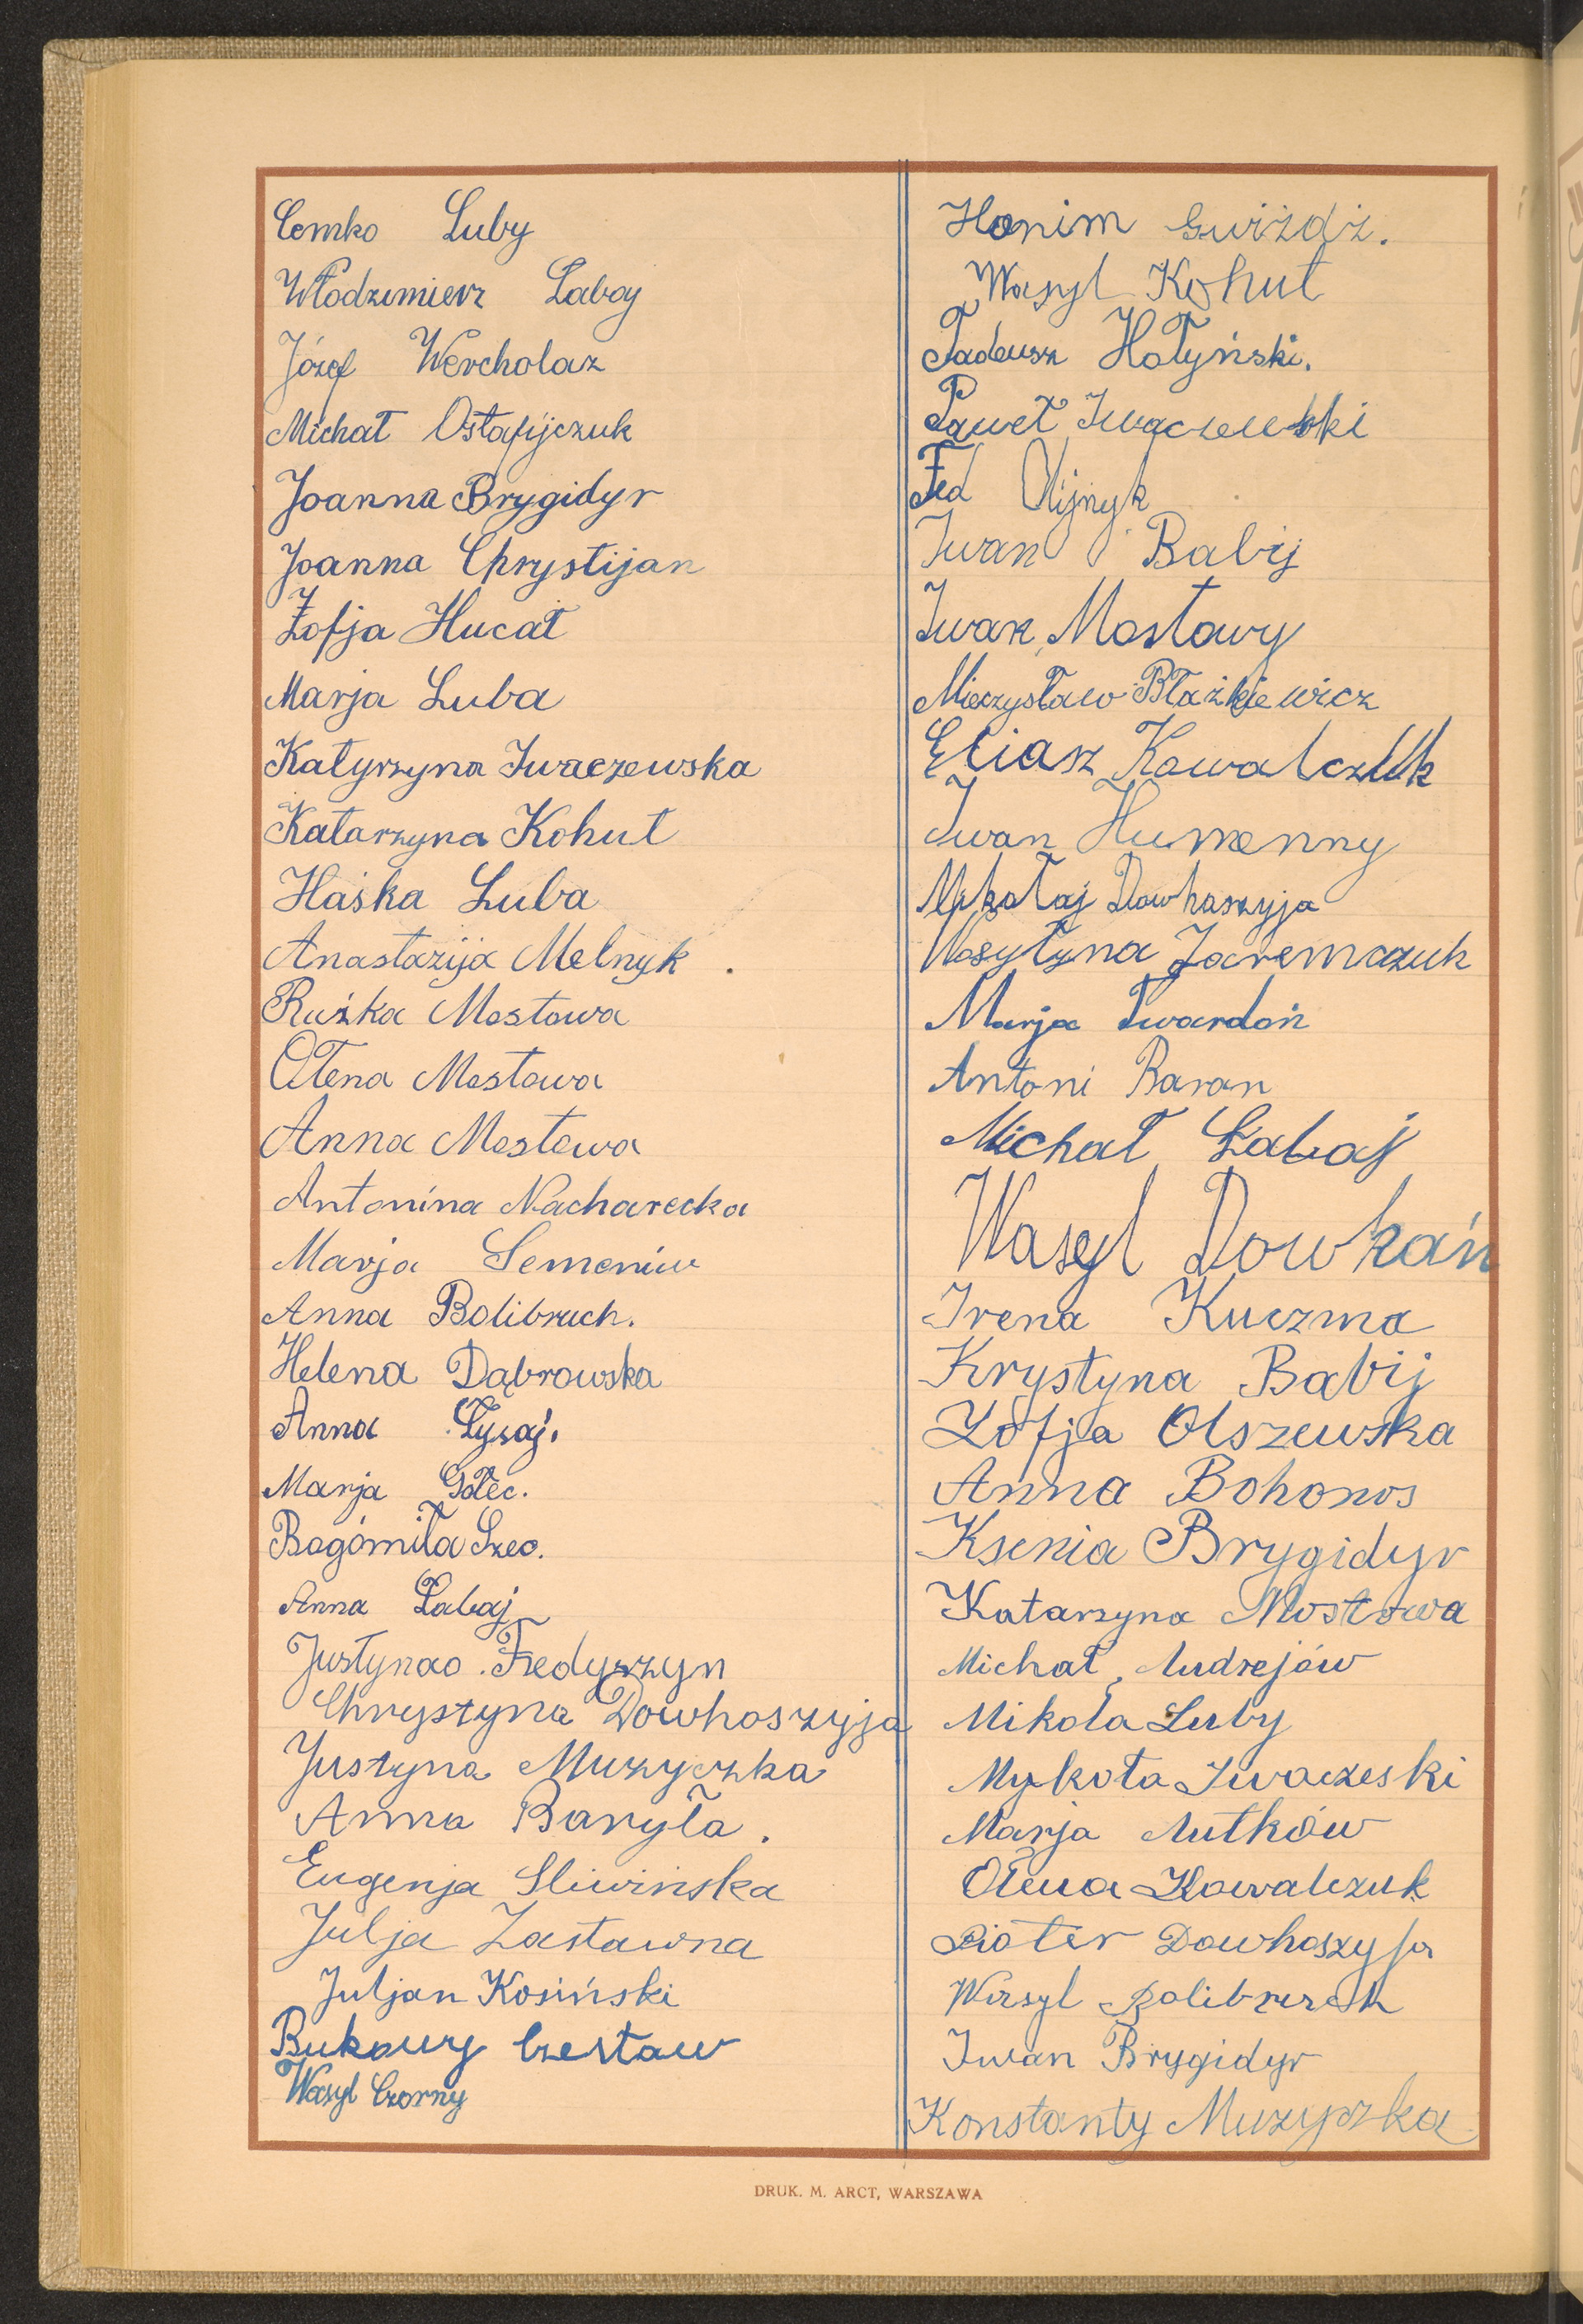 Cemko Luby
Włodzimierz Łabaj
Józef Wercholaz
Michał Ostafijczuk
Joanna Brygidyr
Joanna Chrystijan
Zofja Hucał
Marja Luba
Katyrzyna Iwaczewska
Katarzyna Kohut
Haśka Luba
Anastazija Melnyk
Ruźka Mostowa
Ołena Mostowa
Anna Mostowa
Antonina Nacharecka
Marja Semeniów
Anna Bolibruch.
Helena Dąbrowska
Anna Łysaj.
Marja Golec.
Bogómiła Szec.
Anna Łabaj
Justyna Fedyszyn
Chrystyna Dowhoszyja
Justyna Muzyczka
Anna Baryła.
Eugenja Sliwińska
Julja Zastawna
Juljan Kosiński
Bukowy Czesław
Wasyl Czorny
Honim Gwiżdż.
Wasyl Kohut
Tadeusz Hołyński.
Paweł Iwaczewski
Fed Olijnyk
Iwan Babij
Iwan Mostowy
Mieczysław Błażkiewicz
Eliasz Kowalczuk
Iwan Humenny
Mykołaj Dowhaszyja
Wasyłyna Jaremczuk
Marja Twardoń
Antoni Baran
Michał Łabaj
Wasyl Dowhań
Irena Kuczma
Krystyna Babij
Zofja Olszewska
Anna Bohonos
Ksenia Brygidyr
Katarzyna Mostowa
Michał Andrejów
Mikola Luby
Mykoła Iwaczeski
Marja Lutków
Ołena Kowalczuk
Pioter Dowhoszyja
Wasyl Bolibruch
Iwan Brygidyr
Konstanty Muzyczka
DRUK. M. ARCT, WARSZAWA